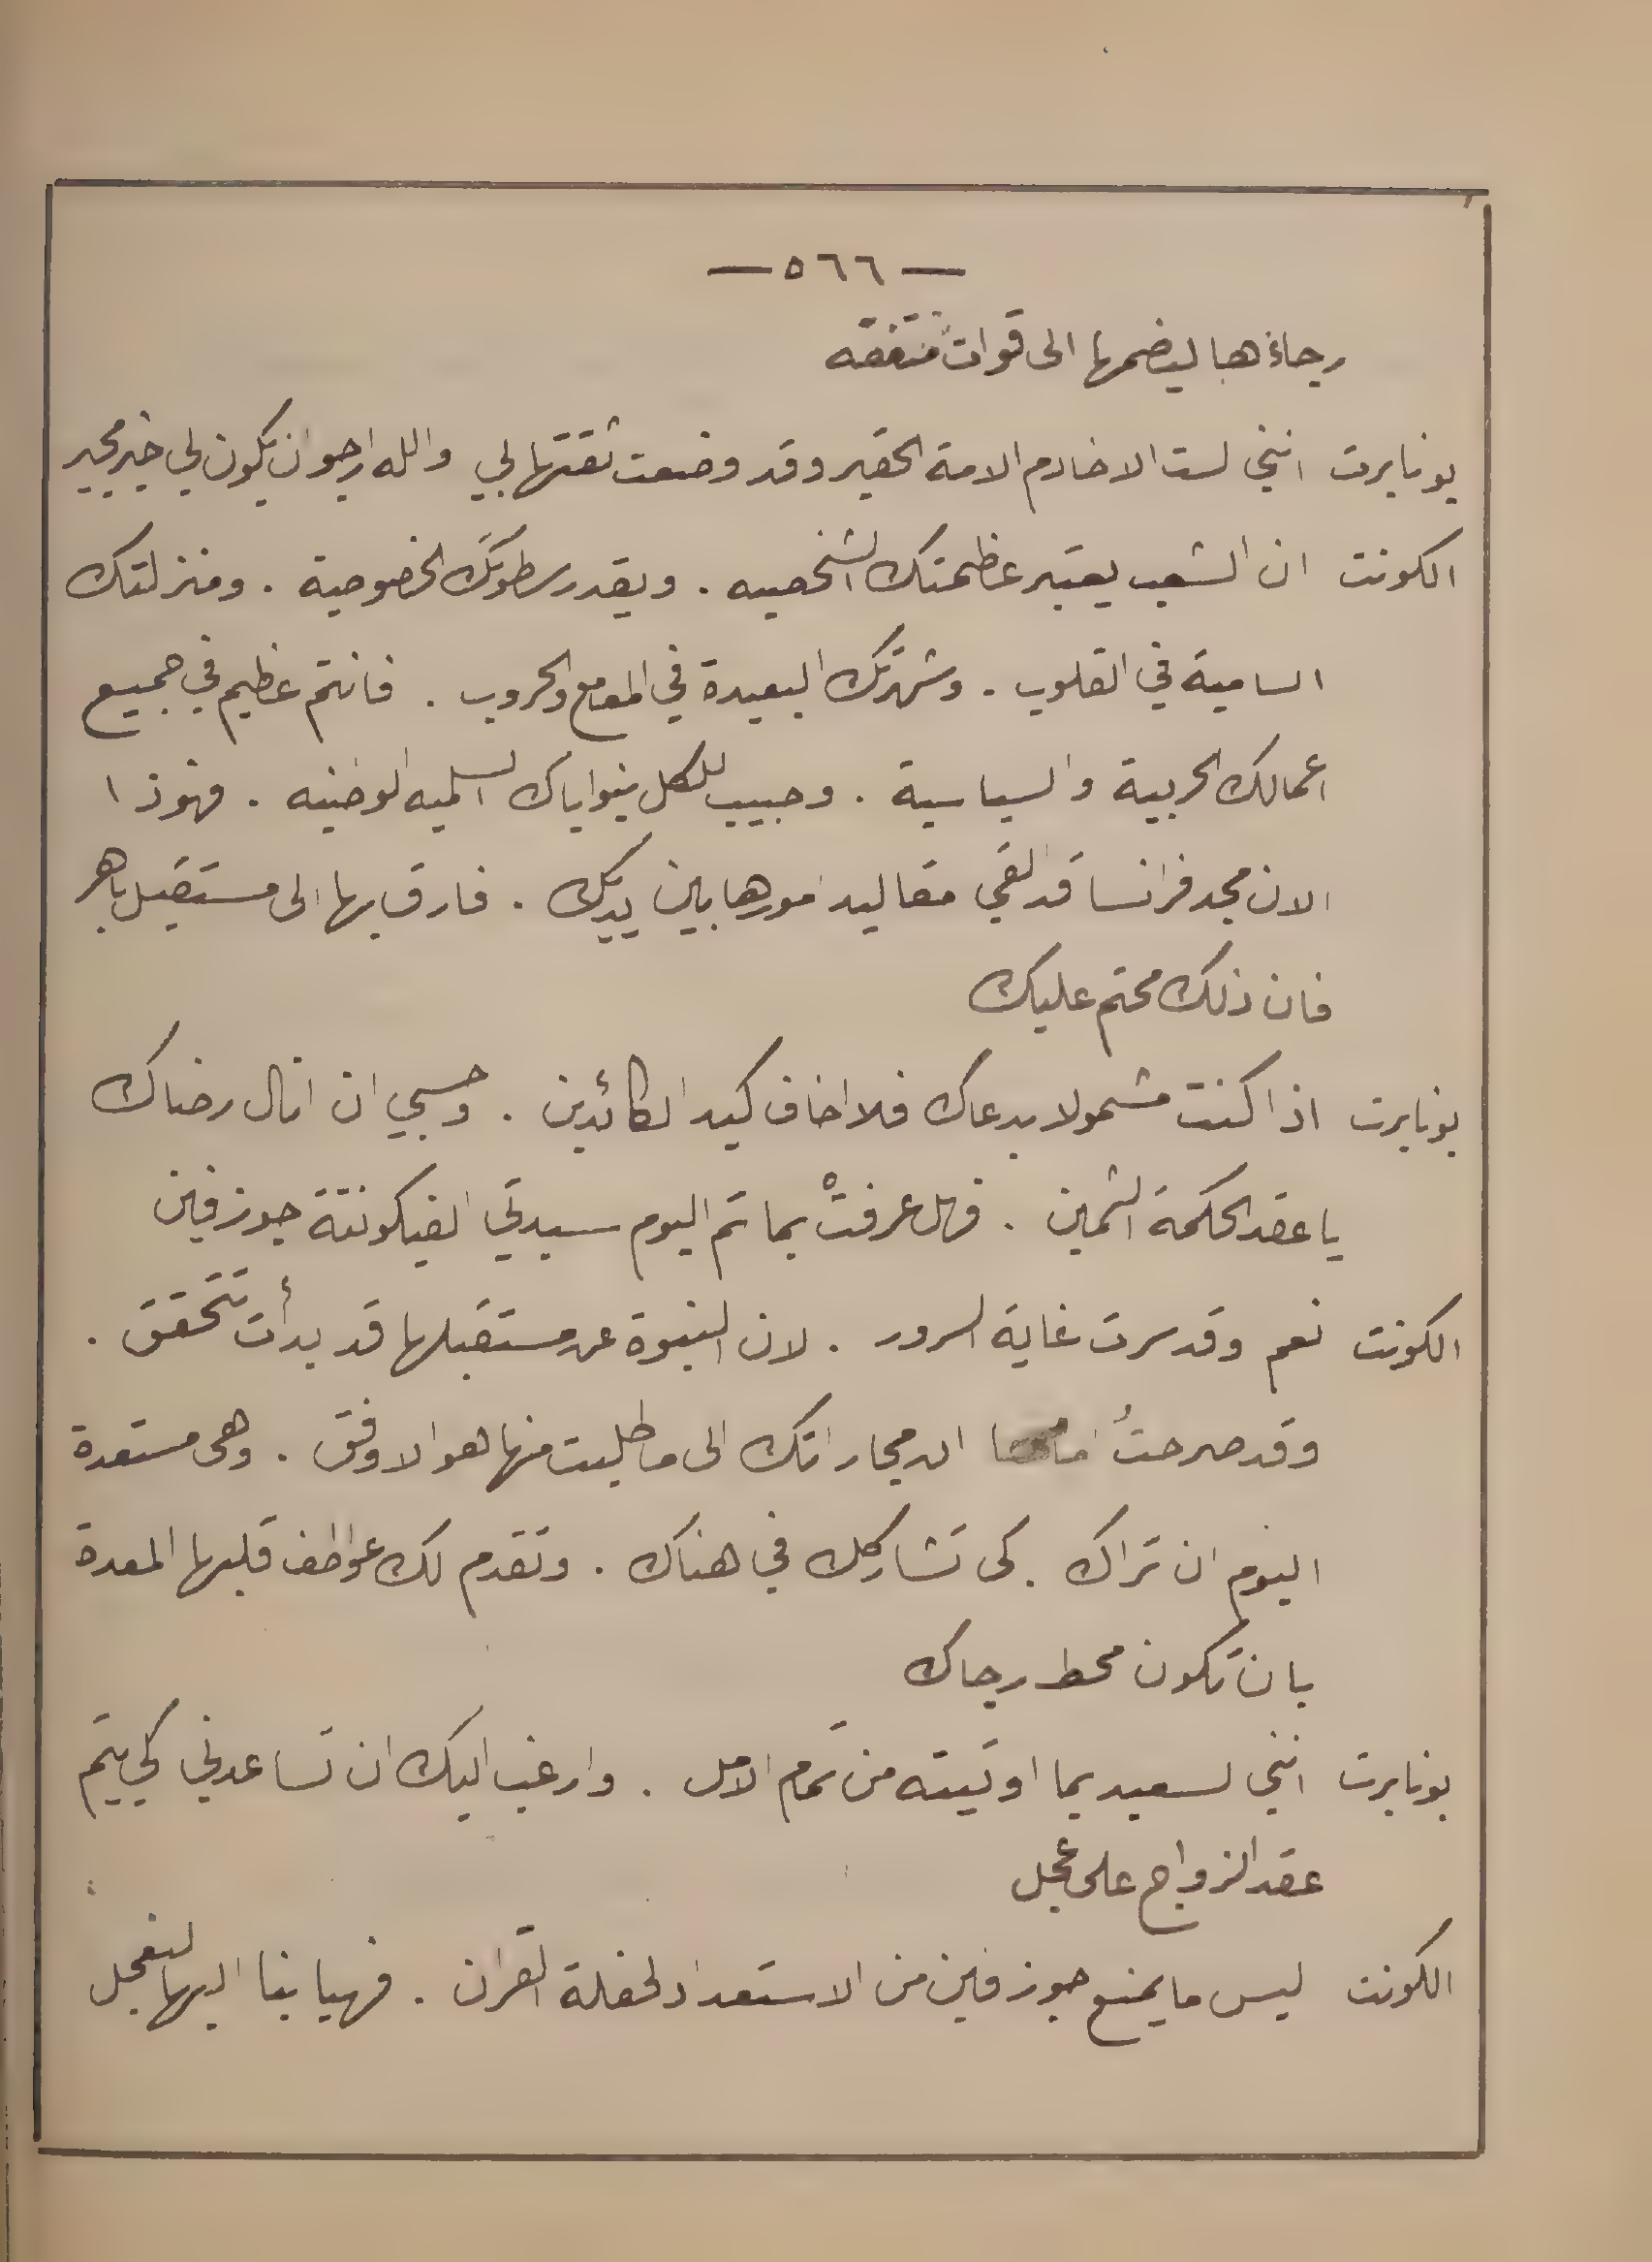 — ٥٦٦ —
رجاءها ليضمها الى قوات متفقه
بونابرت انني لست الا خادم الامة الحقير وقد وضعت ثقتها بي والله ارجو ان يكون لي خير مجير
الكونت ان الشعب يعتبر عظمتك الشخصيه . ويقدر سطوتك الخصوصية . ومنزلتك
السامية في القلوب . وشهرتك البعيدة في المعامع والحروب . فانتم عظيم في جميع
اعمالك الحربية والسياسية . وحبيب للكل بنواياك السلميه الوطنيه . فهوذا
الان مجد فرانسا قد القي مقاليد امورها بين يديك . فارق بها الى مستقبل باهر
فان ذلك محتم عليك
بونابرت اذا كنت مشمولا بدعاك فلا اخاف كيد الكائدين . وحسبي ان انال رضاك
يا عقد الحكمة الثمين . فهل عرفتْ بما تم اليوم سيدتي الفيكونتة جوزفين
الكونت نعم وقد سرت غاية السرور . لان النبوة عن مستقبلها قد بدأت تتحقق .
وقد صرحتُ ان مجاراتك الى ما طلبت منها هو الاوفق . وهى مستعدة
اليوم ان تراك . كى تشاركك في هناك . وتقدم لك عواطف قلبها المعدة
بان تكون محط رجاك
بونابرت انني لسعيد بما اوتيته من تمام الامل . وارغب اليك ان تساعدني كي يتم
عقد الزواج على عجل
الكونت ليس ما يمنع جوزفين من الاستعداد لحفلة القران . فهيا بنا اليها لنعجل